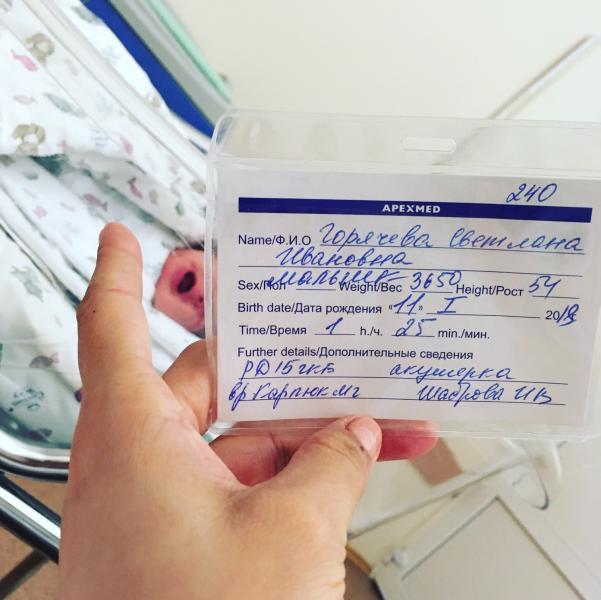 240
APEXMED
Name/Ф.И.О Горячева Светлана
Ивановна
Sex/Пол мальчик Weight/Вес 3650 Height/Рост 54
Birth date/Дата рождения "11" I 2019
Time/Время 1 h./ч. 25 min./мин.
Further details/Дополнительные сведения
РД 15 ГКБ акушерка
вр Карпюк МГ Шаброва ИВ